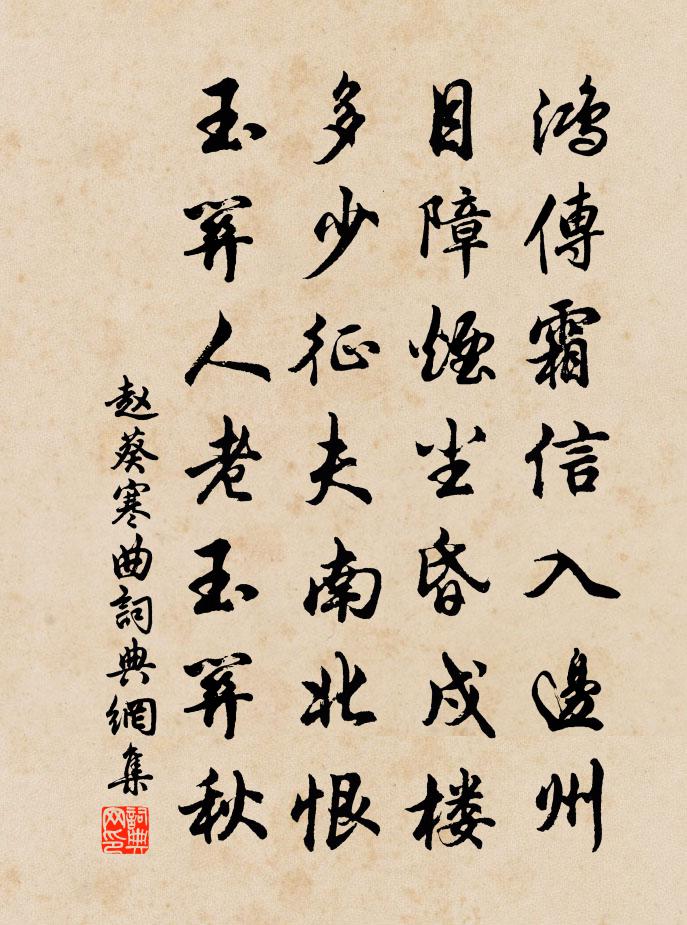 鸿傳霜信入邊州
目障煙尘昏戍楼
多少征夫南北恨
玉笄人老玉笄秋
赵葵寒曲詞典網集
詞典网印